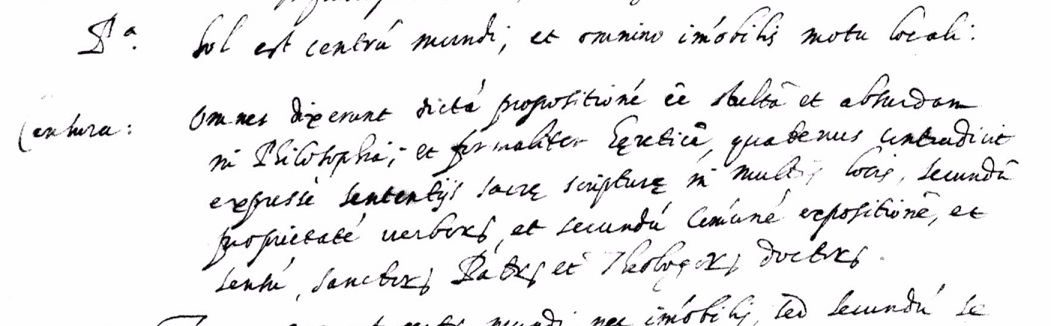 Pa. Sol est centrú mundi, et omnino im̃obilis motu locali.
Censura: Omnes dixerunt dictá propositioné eē stultā et absurdam
in Philosophia; et formaliter hęreticā, quatenus contradicit
expresse sententijs sacrę scripturę in multis locis, secundū
proprietaté verborꝝ, et secundú com̃uné expositionē, et
sensú, sanctorꝝ Patrꝝ et Theologorꝝ doctorꝝ.
mundi nec im̃obilis, sed secundú se